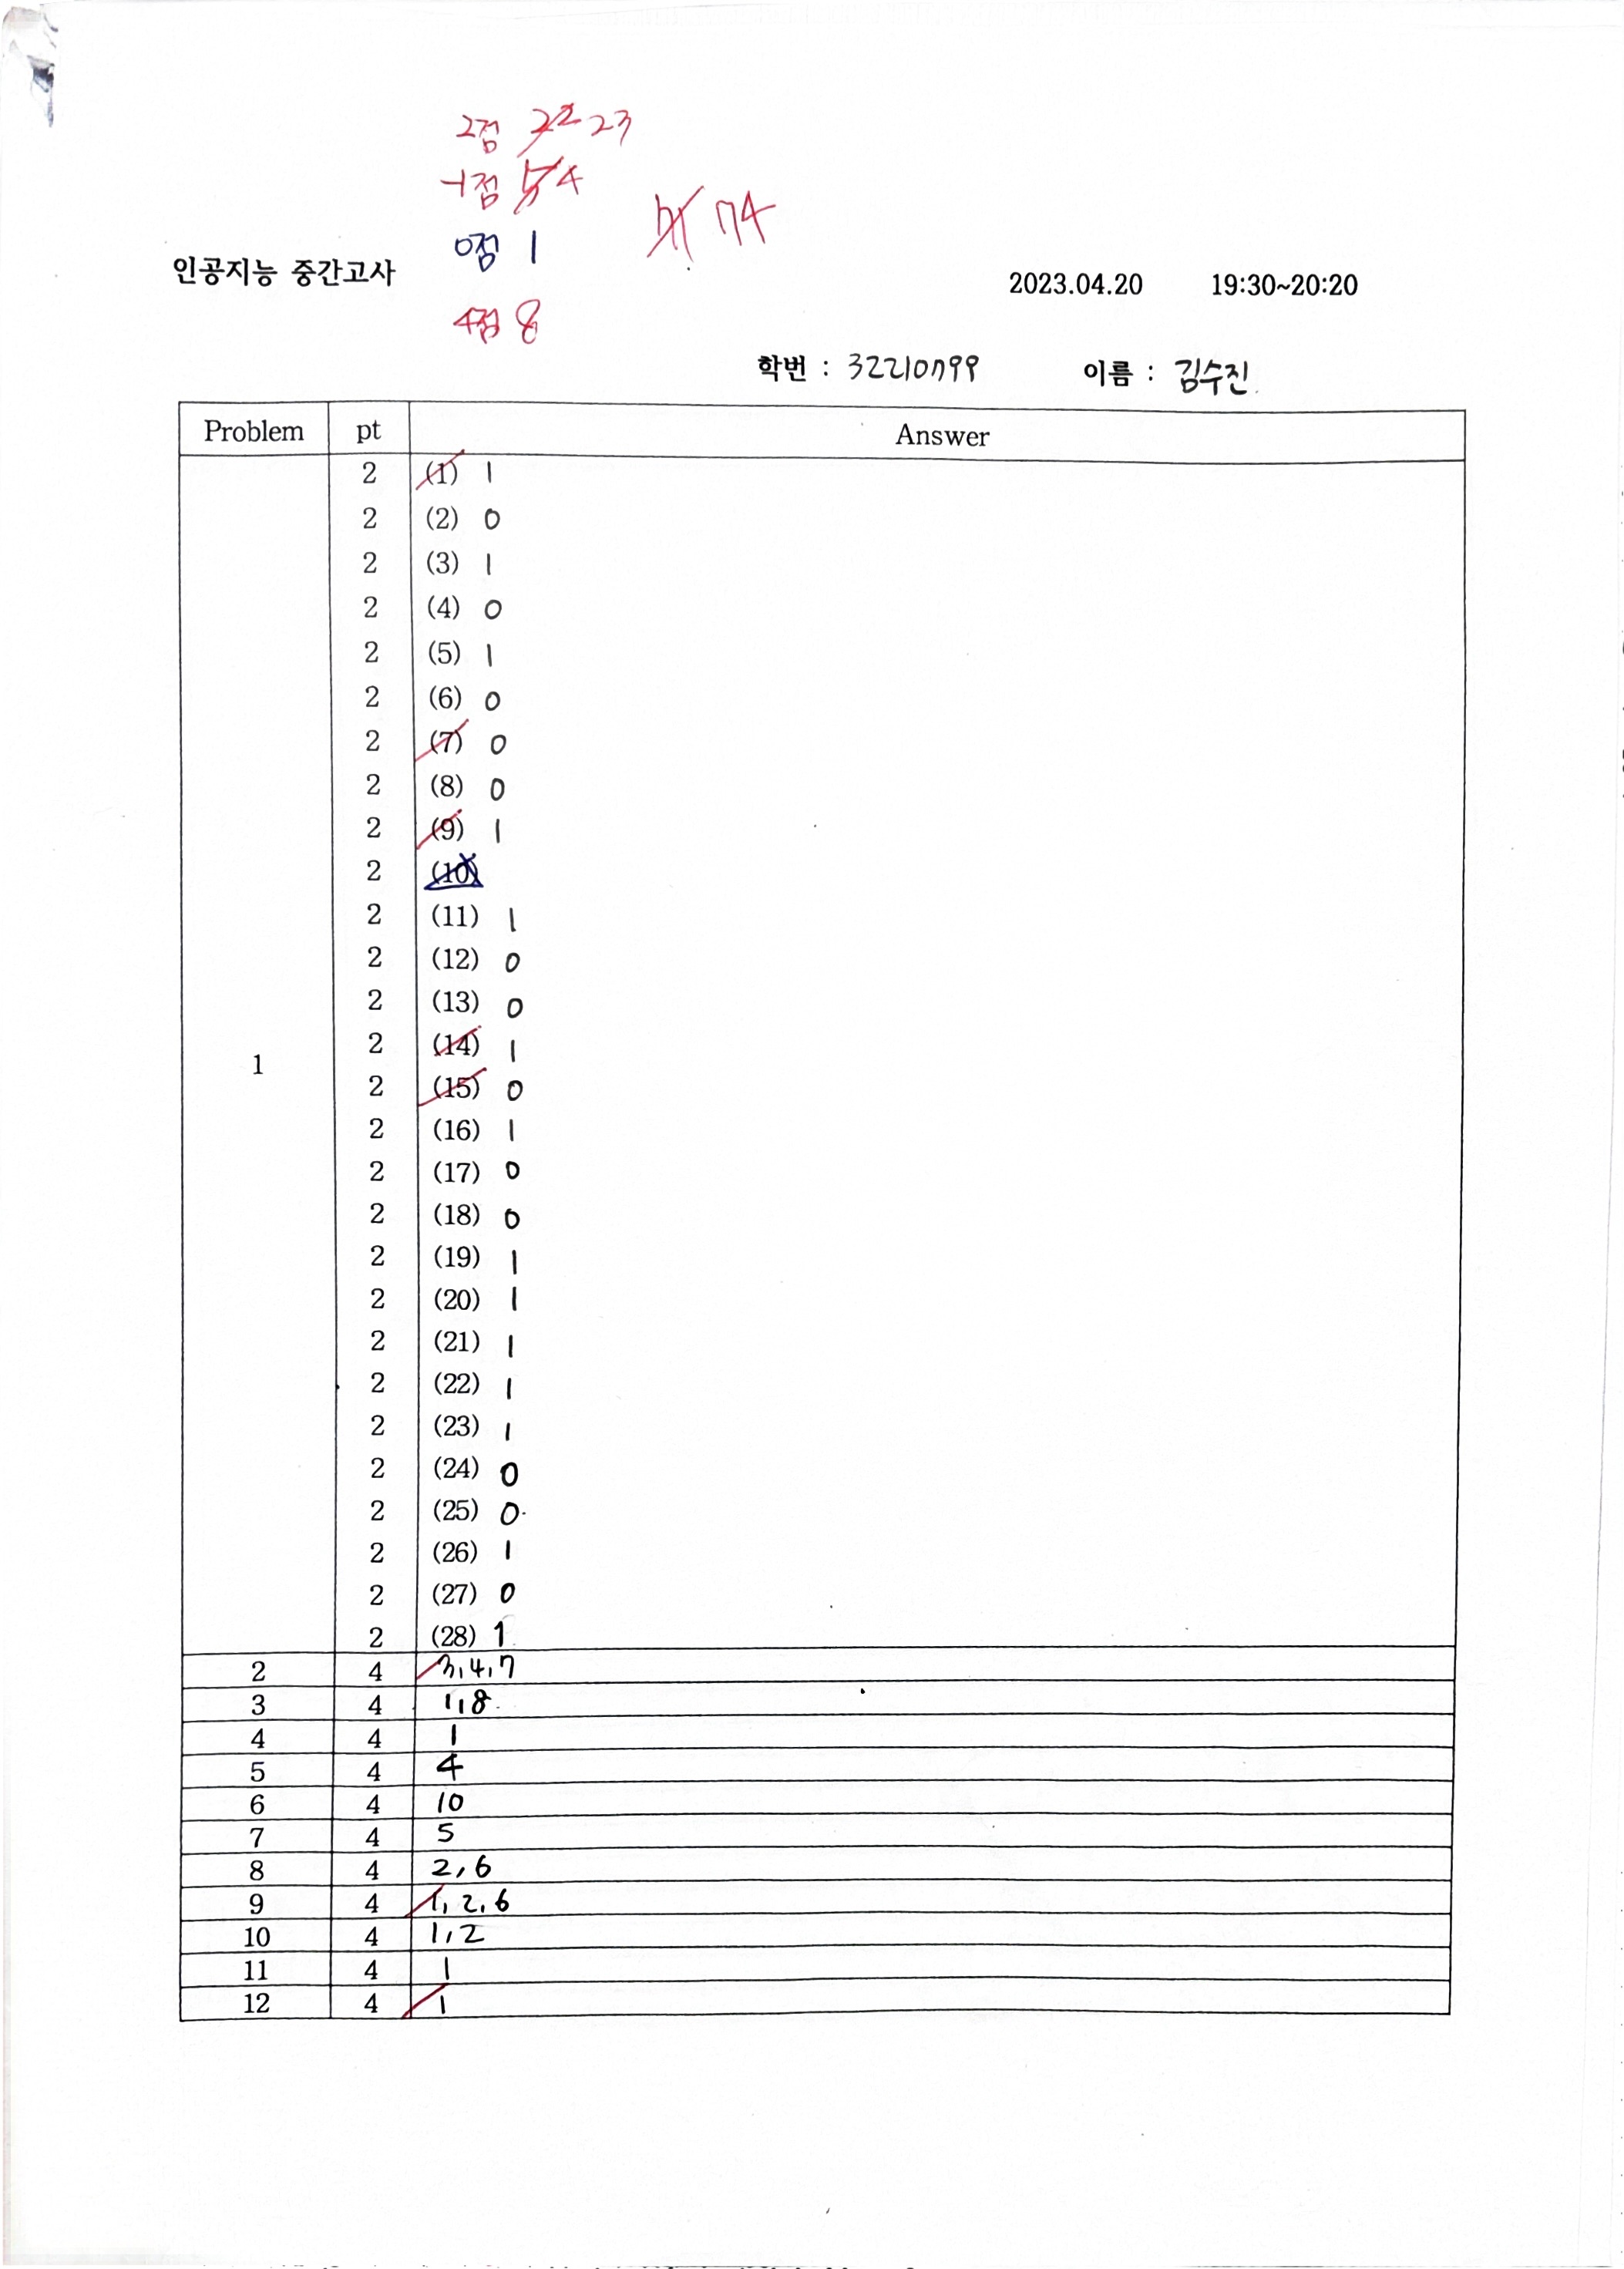 2점 22 23
-1점 5 4
71 74
0점 1
인공지능 중간고사
2023.04.20 19:30~20:20
4점 8
학번 : 32210799 이름 : 김수진
Problem pt Answer
2 (1) 1
2 (2) 0
2 (3) 1
2 (4) 0
2 (5) 1
2 (6) 0
2 (7) 0
2 (8) 0
2 (9) 1
2 (10)
2 (11) 1
2 (12) 0
2 (13) 0
2 (14) 1
1
2 (15) 0
2 (16) 1
2 (17) 0
2 (18) 0
2 (19) 1
2 (20) 1
2 (21) 1
2 (22) 1
2 (23) 1
2 (24) 0
2 (25) 0
2 (26) 1
2 (27) 0
2 (28) 1
2 4 3,4,7
3 4 1,8
4 4 1
5 4 4
6 4 10
7 4 5
8 4 2,6
9 4 1,2,6
10 4 1,2
11 4 1
12 4 1